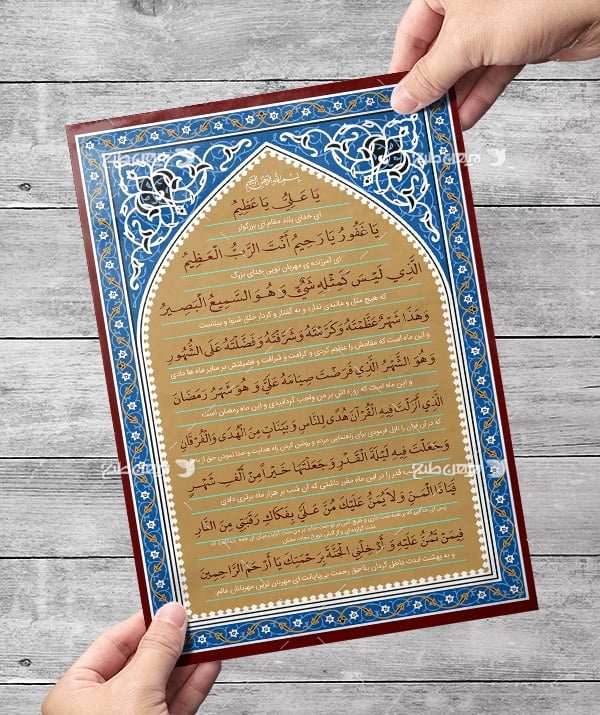 بِسْمِ اللهِ الرَّحْمنِ الرَّحِیمِ
يَا عَلِيُّ يَا عَظِيمُ
ای خدای بلند مقام ای بزرگوار
يَا غَفُورُ يَا رَحِيمُ أَنْتَ الرَّبُّ الْعَظِيمُ
ای آمرزنده ی مهربان تویی خدای بزرگ
الَّذِي لَيْسَ كَمِثْلِهِ شَيْءٌ وَ هُوَ السَّمِيعُ الْبَصِيرُ
که هیچ مثل و مانندی ندارد و به گفتار و کردار خلق شنوا و بیناست
وَ هَذَا شَهْرٌ عَظَّمْتَهُ وَ كَرَّمْتَهُ وَ شَرَّفْتَهُ وَ فَضَّلْتَهُ عَلَى الشُّهُورِ
و این ماه است که مقامش را عظیم کردی و کرامت و شرافت و فضیلتش بر سایر ماه ها دادی
وَ هُوَ الشَّهْرُ الَّذِي فَرَضْتَ صِيَامَهُ عَلَيَّ وَ هُوَ شَهْرُ رَمَضَانَ
و این ماه است که روزه اش بر من واجب گردانیدی و این ماه رمضان است
الَّذِي أَنْزَلْتَ فِيهِ الْقُرْآنَ هُدًى لِلنَّاسِ وَ بَيِّنَاتٍ مِنَ الْهُدَى وَ الْفُرْقَانِ
که در آن قرآن را نازل فرمودی برای راهنمایی مردم و روشن کردن راه هدایت و جدا نمودن حق از باطل
وَ جَعَلْتَ فِيهِ لَيْلَةَ الْقَدْرِ وَ جَعَلْتَهَا خَيْراً مِنْ أَلْفِ شَهْرٍ
شب قدر را در این ماه مقرر داشتی که آن شب بر هزار ماه برتری دادی
فَيَا ذَا الْمَنِّ وَ لاَ يُمَنُّ عَلَيْكَ مُنَّ عَلَيَّ بِفَكَاكِ رَقَبَتِي مِنَ النَّارِ
فِيمَنْ تَمُنُّ عَلَيْهِ وَ أَدْخِلْنِي الْجَنَّةَ بِرَحْمَتِكَ يَا أَرْحَمَ الرَّاحِمِينَ
و به بهشت ابدت داخل گردان به حق رحمت بی‌پایانت ای مهربان ترین مهربانان عالم